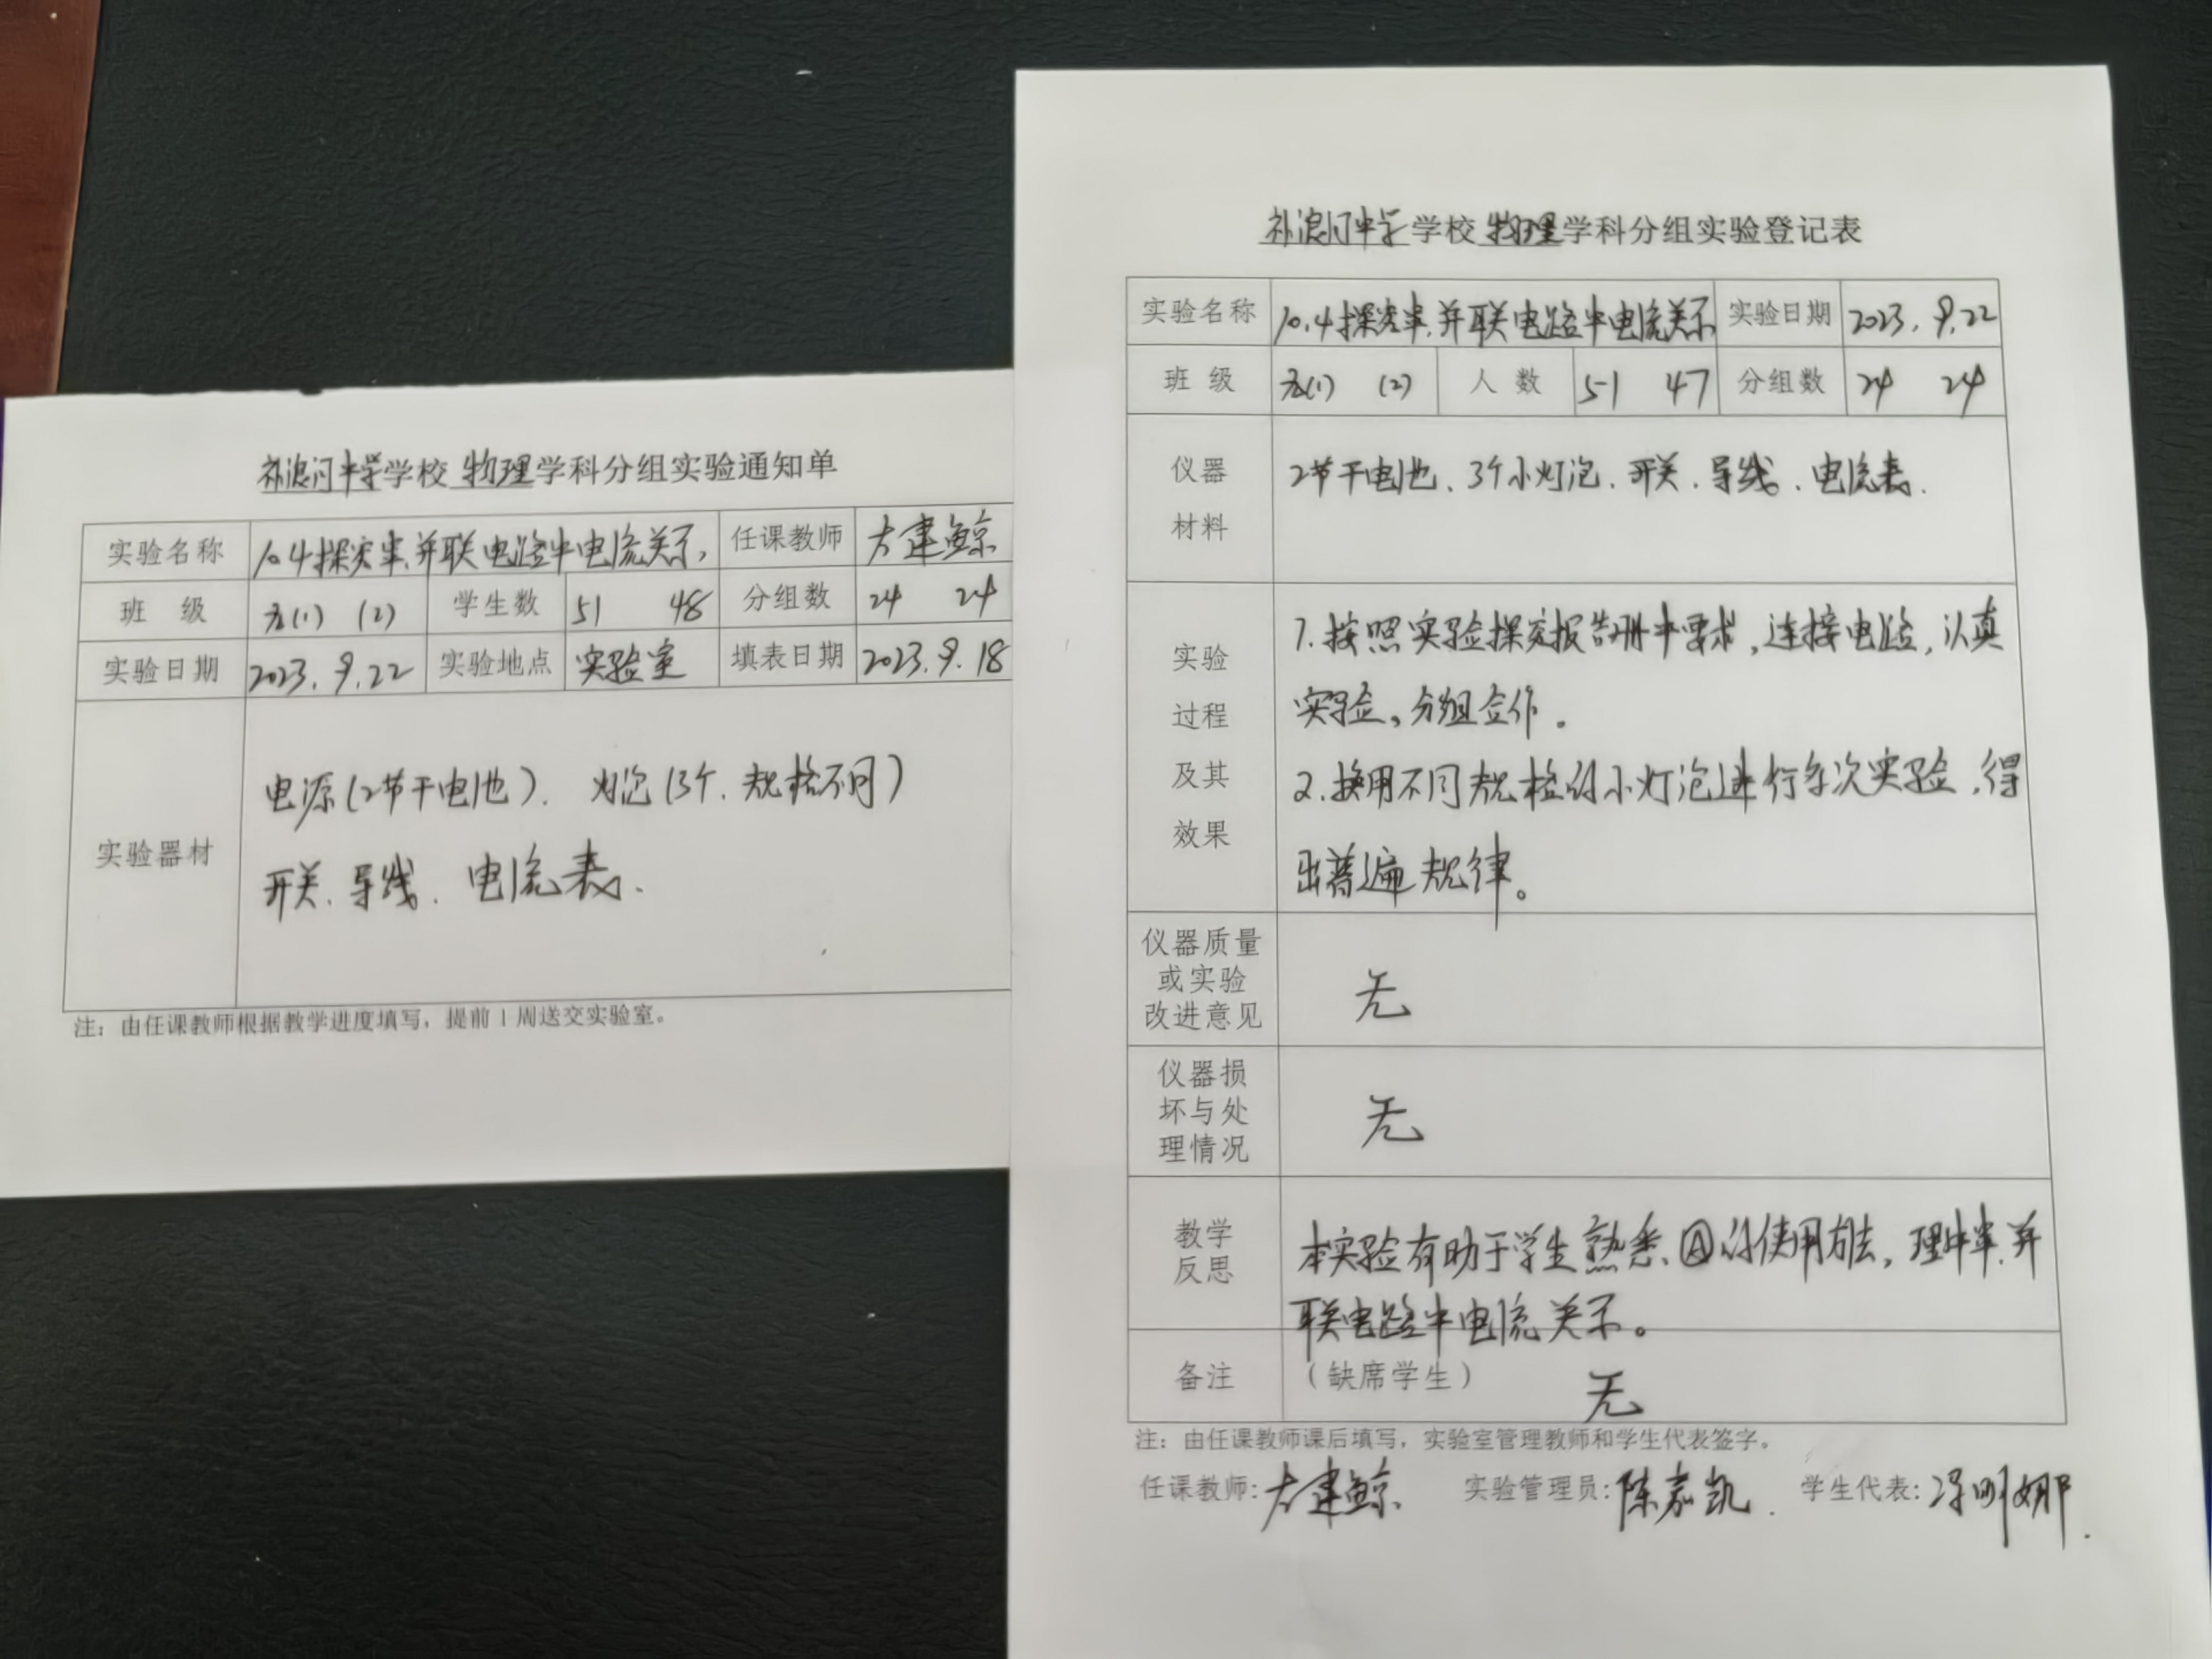 补浪河中学学校 物理学科分组实验通知单
实验名称 10.4探究串、并联电路中电流关系, 任课教师 建鲸
班 级 九(1) (2) 学生数 51 48 分组数 24 24
实验日期 2023.9.22 实验地点 实验室 填表日期 2023.9.18
实验器材
电源(2节干电池)、灯泡(3个、规格不同)
开关、导线、电流表、
注：由任课教师根据教学进度填写，提前1周送交实验室。
补浪河中学学校 物理学科分组实验登记表
实验名称 10.4探究串、并联电路中电流关系 实验日期 2023.9.22
班 级 九(1) (2) 人 数 51 47 分组数 24 24
仪器
材料
2节干电池、3个小灯泡、开关、导线、电流表、
实验
过程
及其
效果
1.按照实验探究报告册中要求,连接电路,认真
实验,分组合作。
2.换用不同规格的小灯泡进行多次实验,得
出普遍规律。
仪器质量
或实验
改进意见
无
仪器损
坏与处
理情况
无
教学
反思
本实验有助于学生熟悉Ⓐ的使用方法,理解串、并
联电路中电流关系。
备注 (缺席学生) 无
注：由任课教师课后填写，实验室管理教师和学生代表签字。
任课教师: 建鲸 实验管理员:陈嘉凯. 学生代表: 明娜.